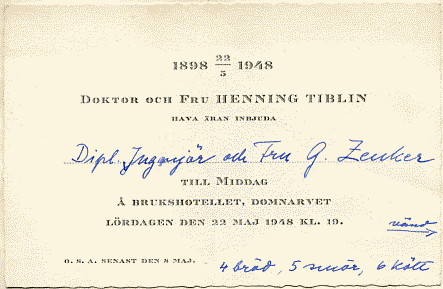 1898 22/5 1948
DOKTOR OCH FRU HENNING TIBLIN
HAVA ÄRAN INBJUDA
Dipl. Ingenjör och Fru G. Zenker
TILL MIDDAG
Å BRUKSHOTELLET, DOMNARVET
LÖRDAGEN DEN 22 MAJ 1948 KL. 19.
vänd
O. S. A. SENAST DEN 8 MAJ.
4 bröd, 5 smör, 6 kött